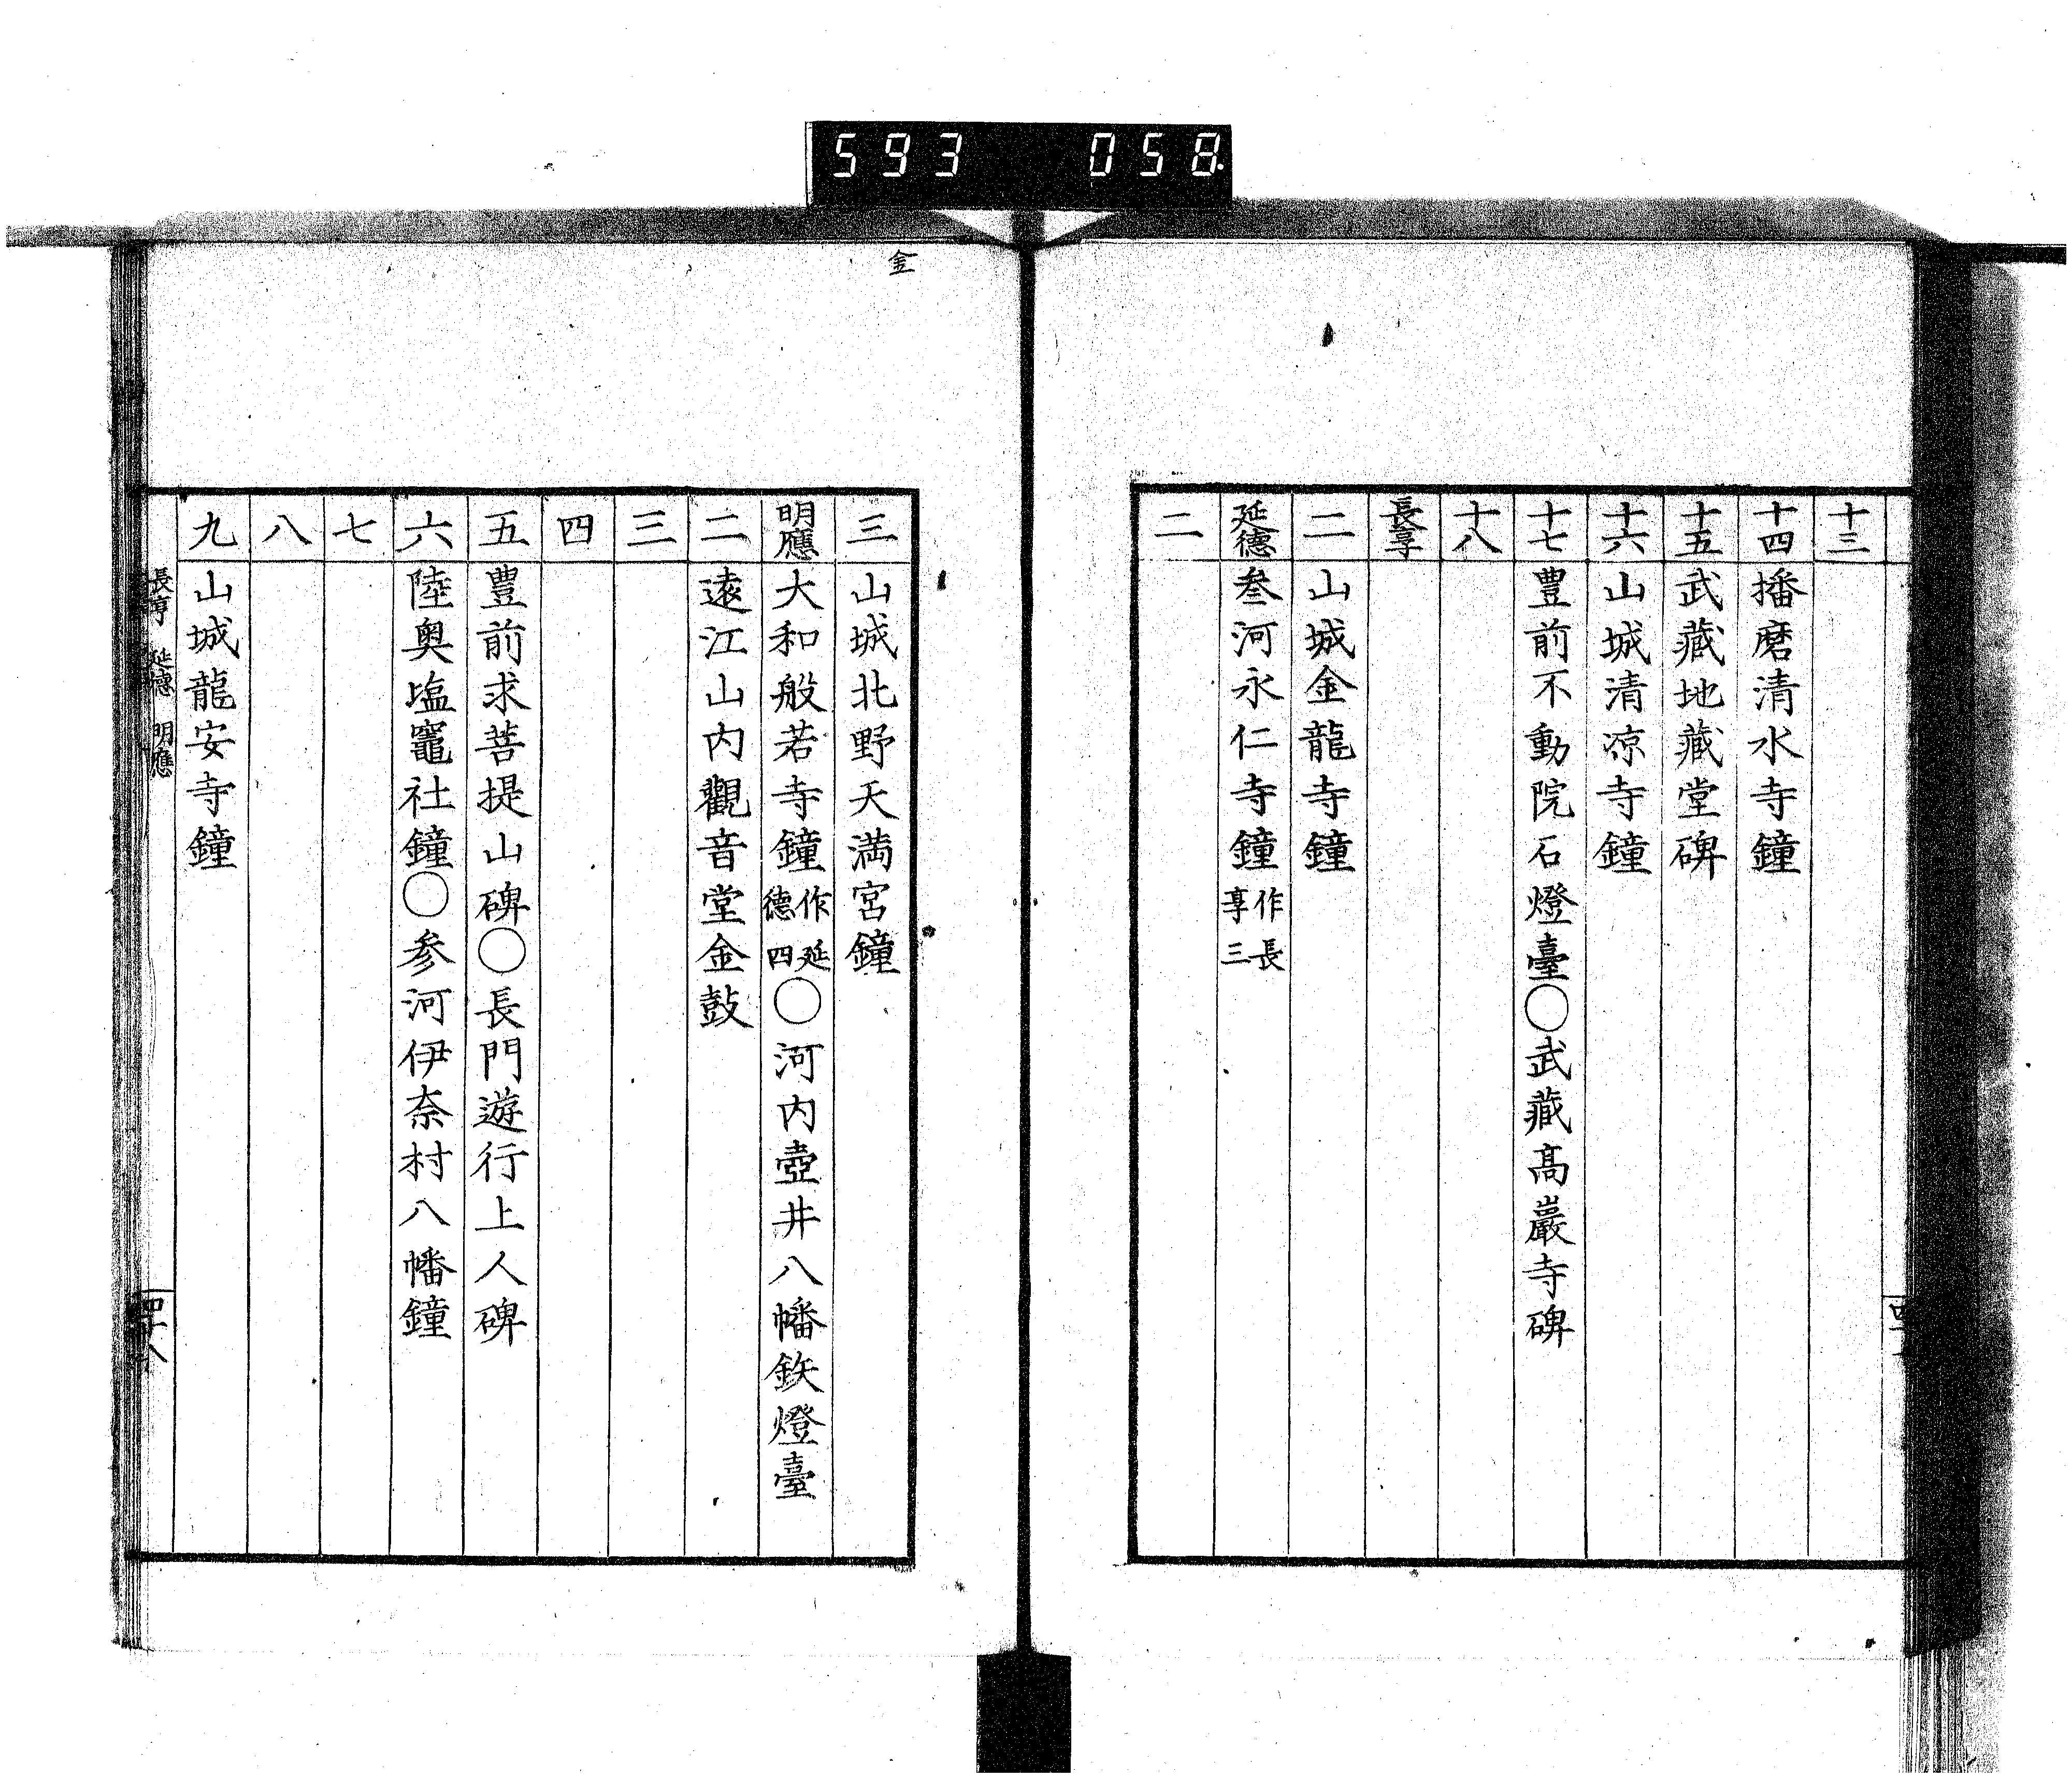 593 058
十三
十四 播磨清水寺鐘
十五 武藏地藏堂碑
十六 山城清凉寺鐘
十七 豊前不動院石燈臺○武藏髙巖寺碑
十八
長享
二 山城金龍寺鐘
延德 叄河永仁寺鐘 作長享三
二
金
三 山城北野天満宮鐘
明應 大和般若寺鐘 作延德四○河内壺井八幡鉃燈臺
二 遠江山内觀音堂金鼓
三
四
五 豊前求菩提山碑○長門遊行上人碑
六 陸奥塩竈社鐘○参河伊奈村八幡鐘
七
八
九 山城龍安寺鐘
長享 延德 明應
四十八